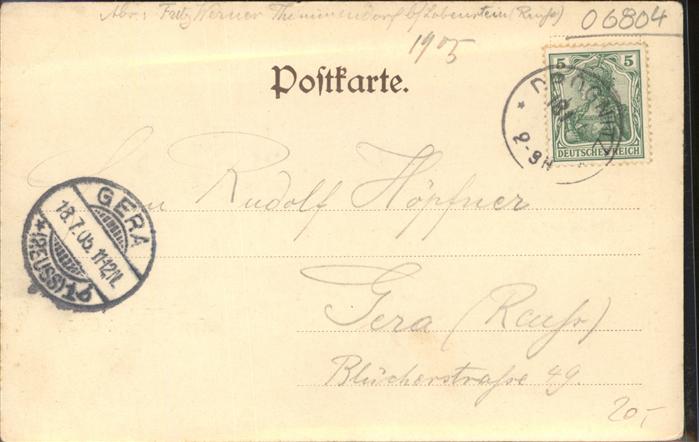 Abs.: Fritz Werner Thimmendorf b/Lobenstein (Reuß)
06804
1905
Postkarte.
5 5
DEUTSCHES REICH
18.7
8-9N
Herrn Rudolf Höpfner
GERA
18.7.05. 11-12N.
*(REUSS) 1b
Gera (Reuß)
Blücherstraße 49.
20,-